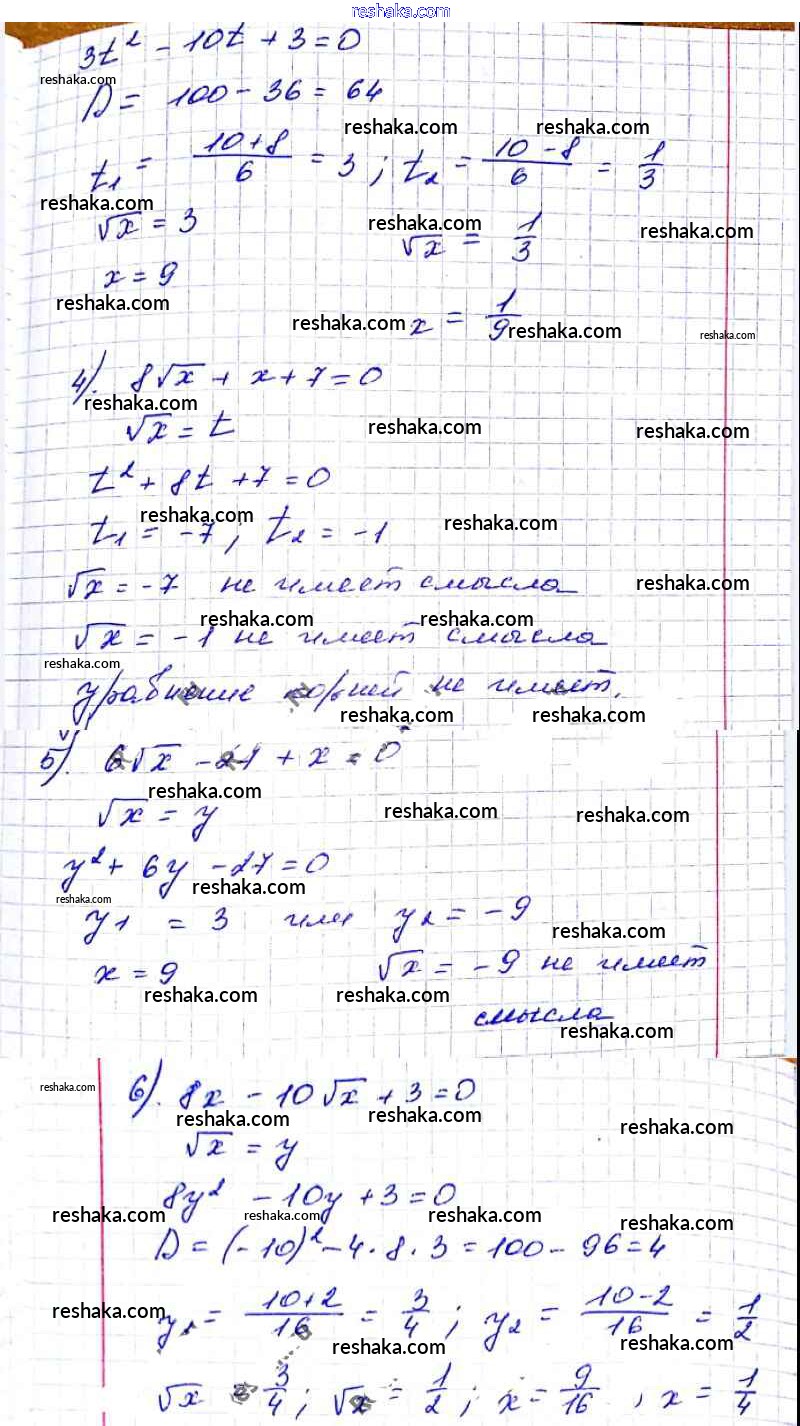 reshaka.com
3t² - 10t + 3 = 0
reshaka.com
D = 100 - 36 = 64
reshaka.com reshaka.com
t₁ = (10+8)/6 = 3 ; t₂ = (10-8)/6 = 1/3
reshaka.com reshaka.com reshaka.com
√x = 3 √x = 1/3
x = 9
reshaka.com reshaka.com reshaka.com reshaka.com
x = 1/9
4). 8√x + x + 7 = 0
reshaka.com reshaka.com reshaka.com
√x = t
t² + 8t + 7 = 0
reshaka.com reshaka.com
t₁ = -7 ; t₂ = -1
√x = -7 не имеет смысла reshaka.com
reshaka.com reshaka.com
√x = -1 не имеет смысла
reshaka.com
уравнение корней не имеет.
reshaka.com reshaka.com
5). 6√x - 27 + x = 0
reshaka.com reshaka.com reshaka.com
√x = y
y² + 6y - 27 = 0
reshaka.com reshaka.com
y₁ = 3 или y₂ = -9
reshaka.com
x = 9 √x = -9 не имеет
reshaka.com reshaka.com
смысла
reshaka.com
reshaka.com 6). 8x - 10√x + 3 = 0
reshaka.com reshaka.com reshaka.com
√x = y
8y² - 10y + 3 = 0
reshaka.com reshaka.com reshaka.com reshaka.com
D = (-10)² - 4·8·3 = 100 - 96 = 4
reshaka.com
y₁ = (10+2)/16 = 3/4 ; y₂ = (10-2)/16 = 1/2
reshaka.com reshaka.com
√x = 3/4 ; √x = 1/2 ; x = 9/16 , x = 1/4